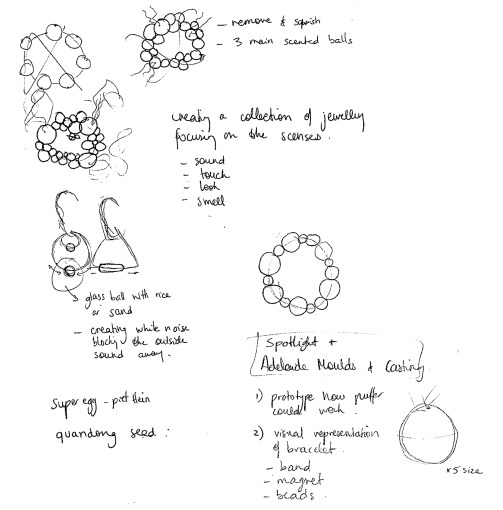 - remove & squish
- 3 main scented balls
creating a collection of jewellery
focusing on the scenses.
- sound
- touch
- look
- smell
glass ball with rice
or sand
- creating white noise
blocking the outside
sound away.
Spotlight +
Adelaide Moulds & Casting
super egg - piet hein
quandong seed :
1) prototype how puffer
could work.
2) visual representation
of bracelet.
- band
- magnet
- beads.
x5 size